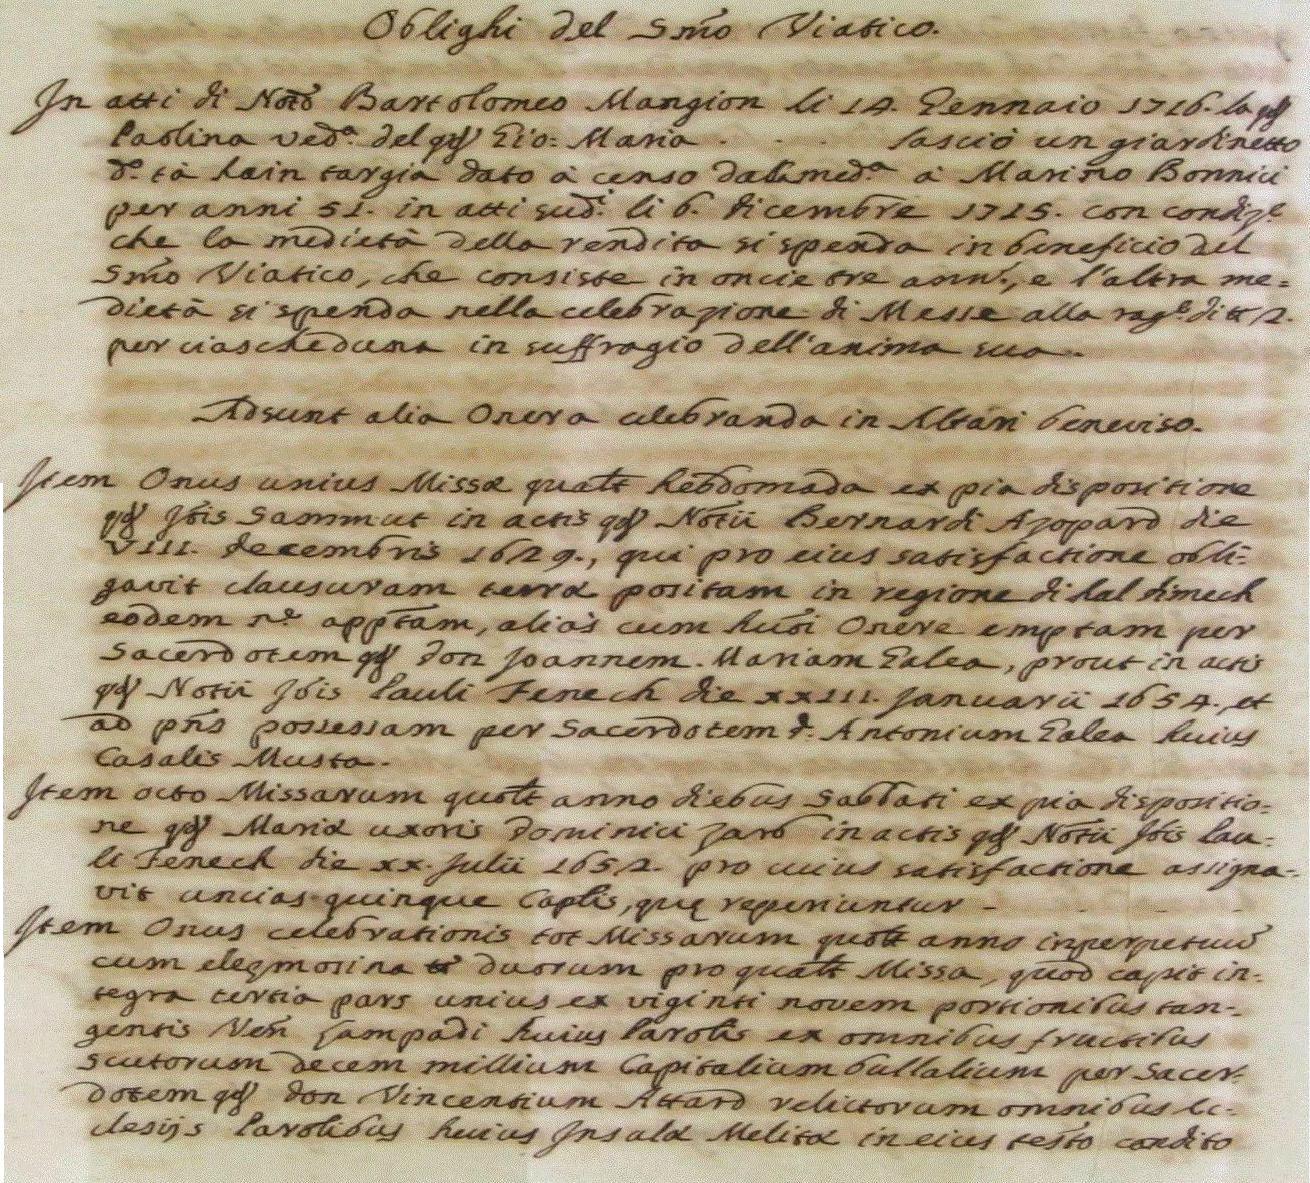 Oblighi del Smo Viatico.
In atti di Notō Bartolomeo Mangion li 14. Gennaio 1716. la qq
Paolina vedª. del qq Gio: Maria . . . . lasciò un giardinetto
dº. tà hain targia dato à censo dalla medª à Marino Bonnici
per anni 51. in atti sudi. li 6. dicembre 1715. con condizᵉ
che la medietà della rendita si spenda in beneficio del
Smo Viatico, che consiste in oncie tre ann:, e l'altra me=
dietà si spenda nella celebrazione di Messe alla ragᵉ di tt 2.
per ciascheduna in suffragio dell'anima sua.
Adsunt alia Onera celebranda in Altari beneviso.
Item Onus unius Missæ qualt hebdomada ex pia dispositione
qq Jōis Sammut in actis qq Notii Bernardi Azopard die
VIII. decembris 1629., qui pro eius satisfactione obli=
gavit clausuram terræ positam in regione di hal dimech
eodem nᵉ appētam, aliàs cum huōi Onere emptam per
Sacerdotem qq don Joannem. Mariam Galea, prout in actis
qq Notii Jōis Pauli Fenech die xxIII. Januarii 1654. et
ad pn̄s possessam per Sacerdotem d. Antonium Galea huius
Casalis Musta.
Item octo Missarum quolt anno diebus Sabbati ex pia dispositio=
ne qq Mariæ uxoris Dominici Zarb in actis qq Notii Jōis Pau=
li Fenech die xx. Julii 1652. pro cuius satisfactione assigna=
vit uncias quinque Caplis, quę reperiuntur - - - -
Item Onus celebrationis tot Missarum quolt anno inperpetuū
cum elęmosina tt duorum pro qualt Missa, quod capit in=
tegra tertia pars unius ex viginti novem portionibus tan=
gentis Ven̄ Lampadi huius Parolis ex omnibus fructibus
scutorum decem millium Capitalium bullalium per Sacer=
dotem qq don Vincentium Attard relictorum omnibus Ec=
clesijs Parolibus huius Insulæ Melitæ in eius testō condito